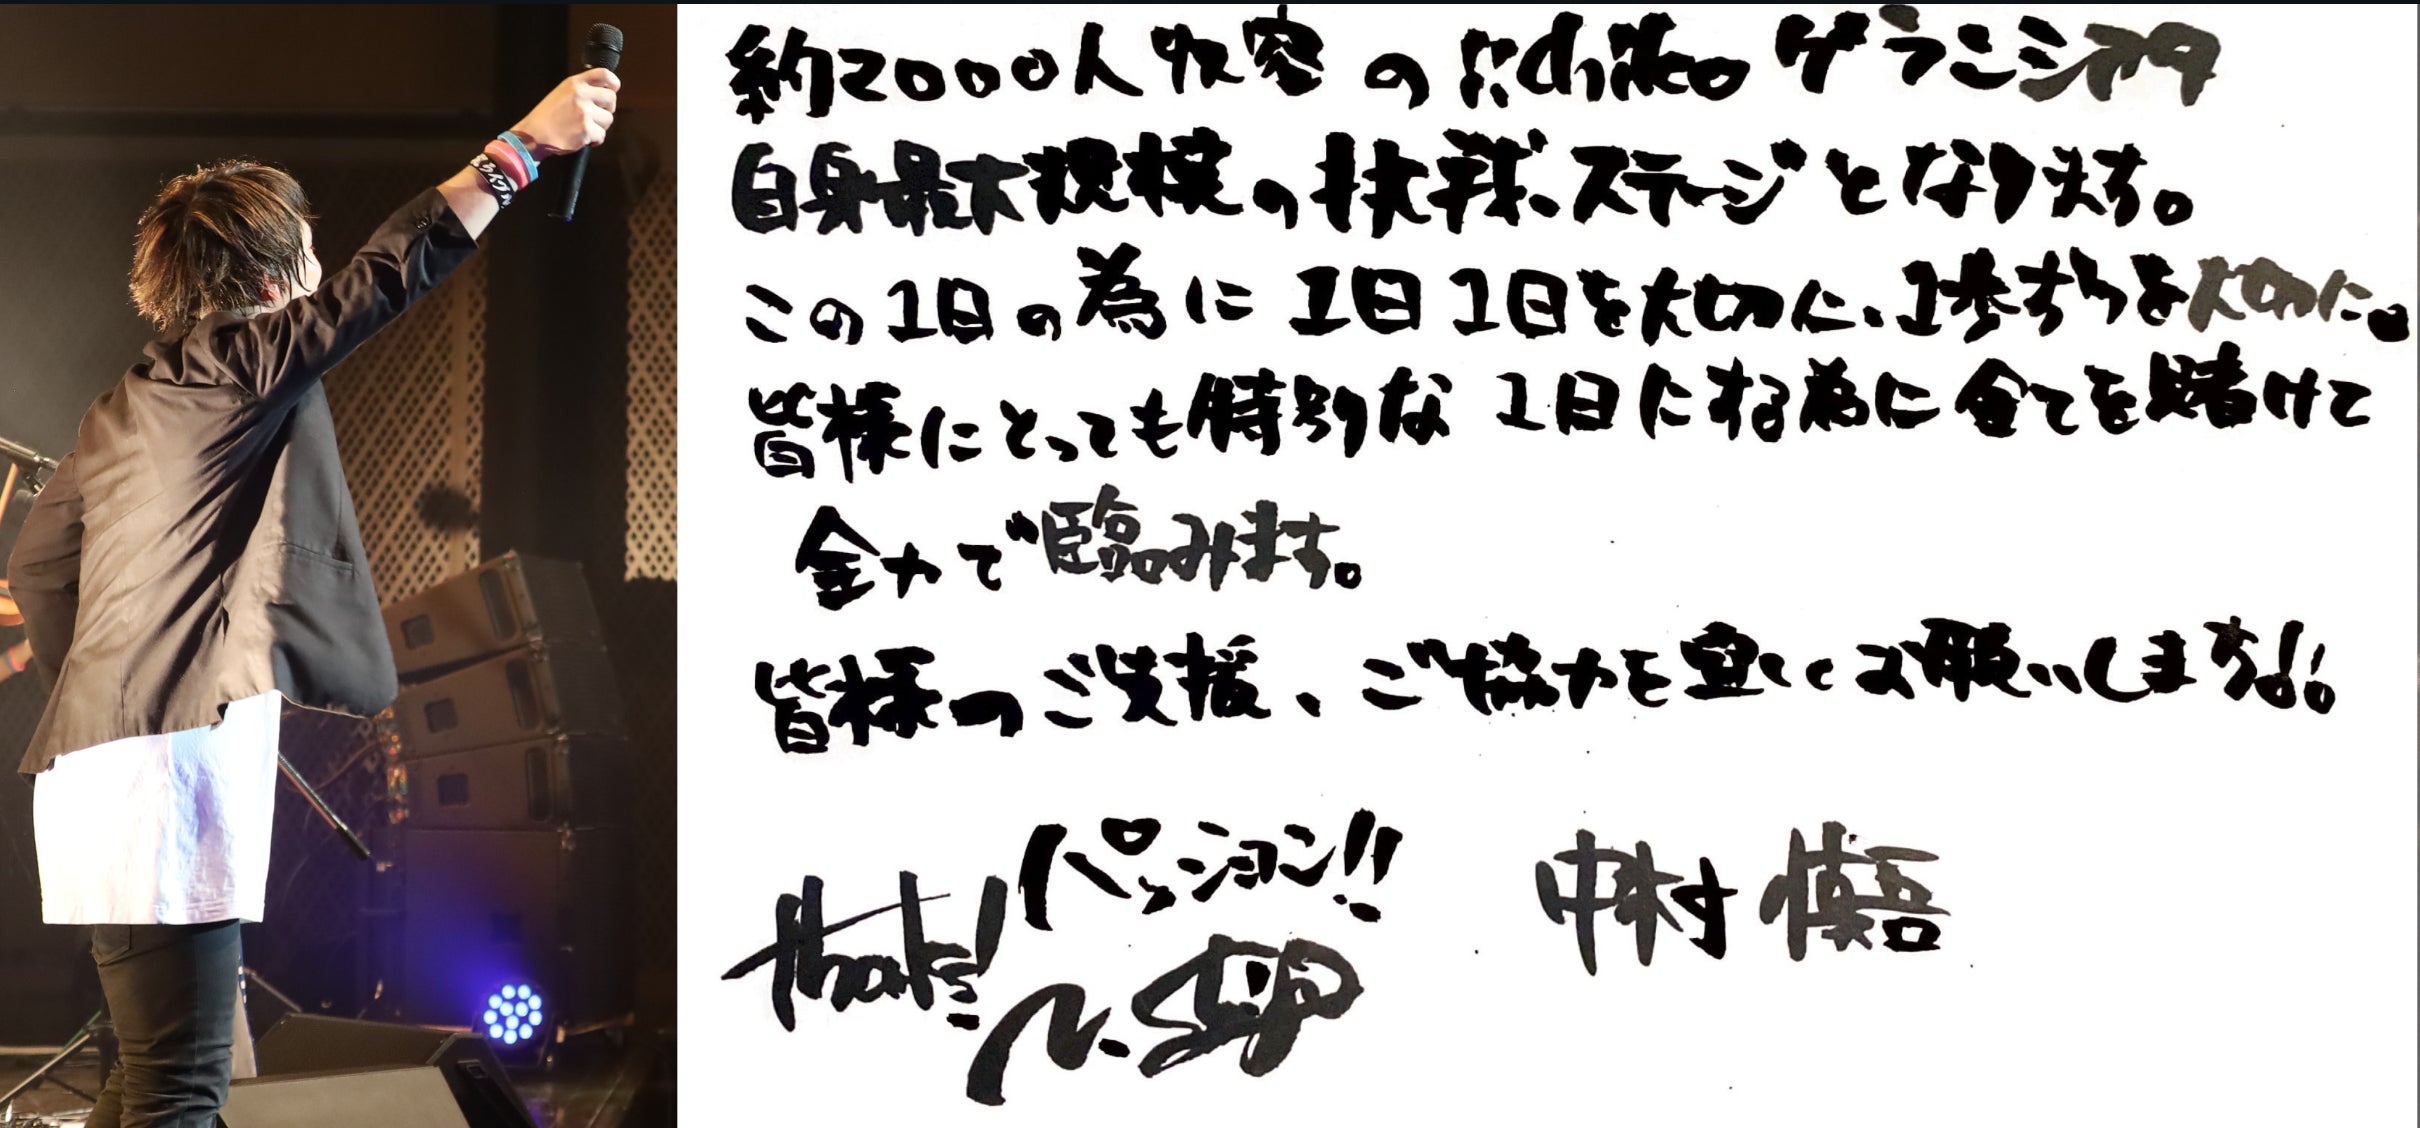 約2000人収容のNiterra
自身最大規模の挑戦ステージとなります。
この1日の為に1日1日を大切に、1歩ずつを大切に。
皆様にとっても特別な1日にする為に全てを賭けて
全力で臨みます。
皆様のご支援、ご協力を宜しくお願いします!!
パッション!!
thanks!
中村 慎吾